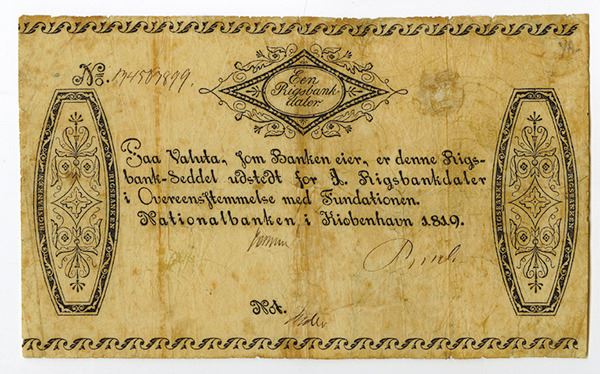 Een
Rigsbank-
daler.
No.
Paa Valuta, som Banken eier, er denne Rigs-
bank-Seddel udstedt for 1. Rigsbankdaler
i Overeensstemmelse med Fundationen.
Nationalbanken i Kiobenhavn 1819.
Not.
RIGSBANKEN
RIGSBANKEN
RIGSBANKEN
RIGSBANKEN